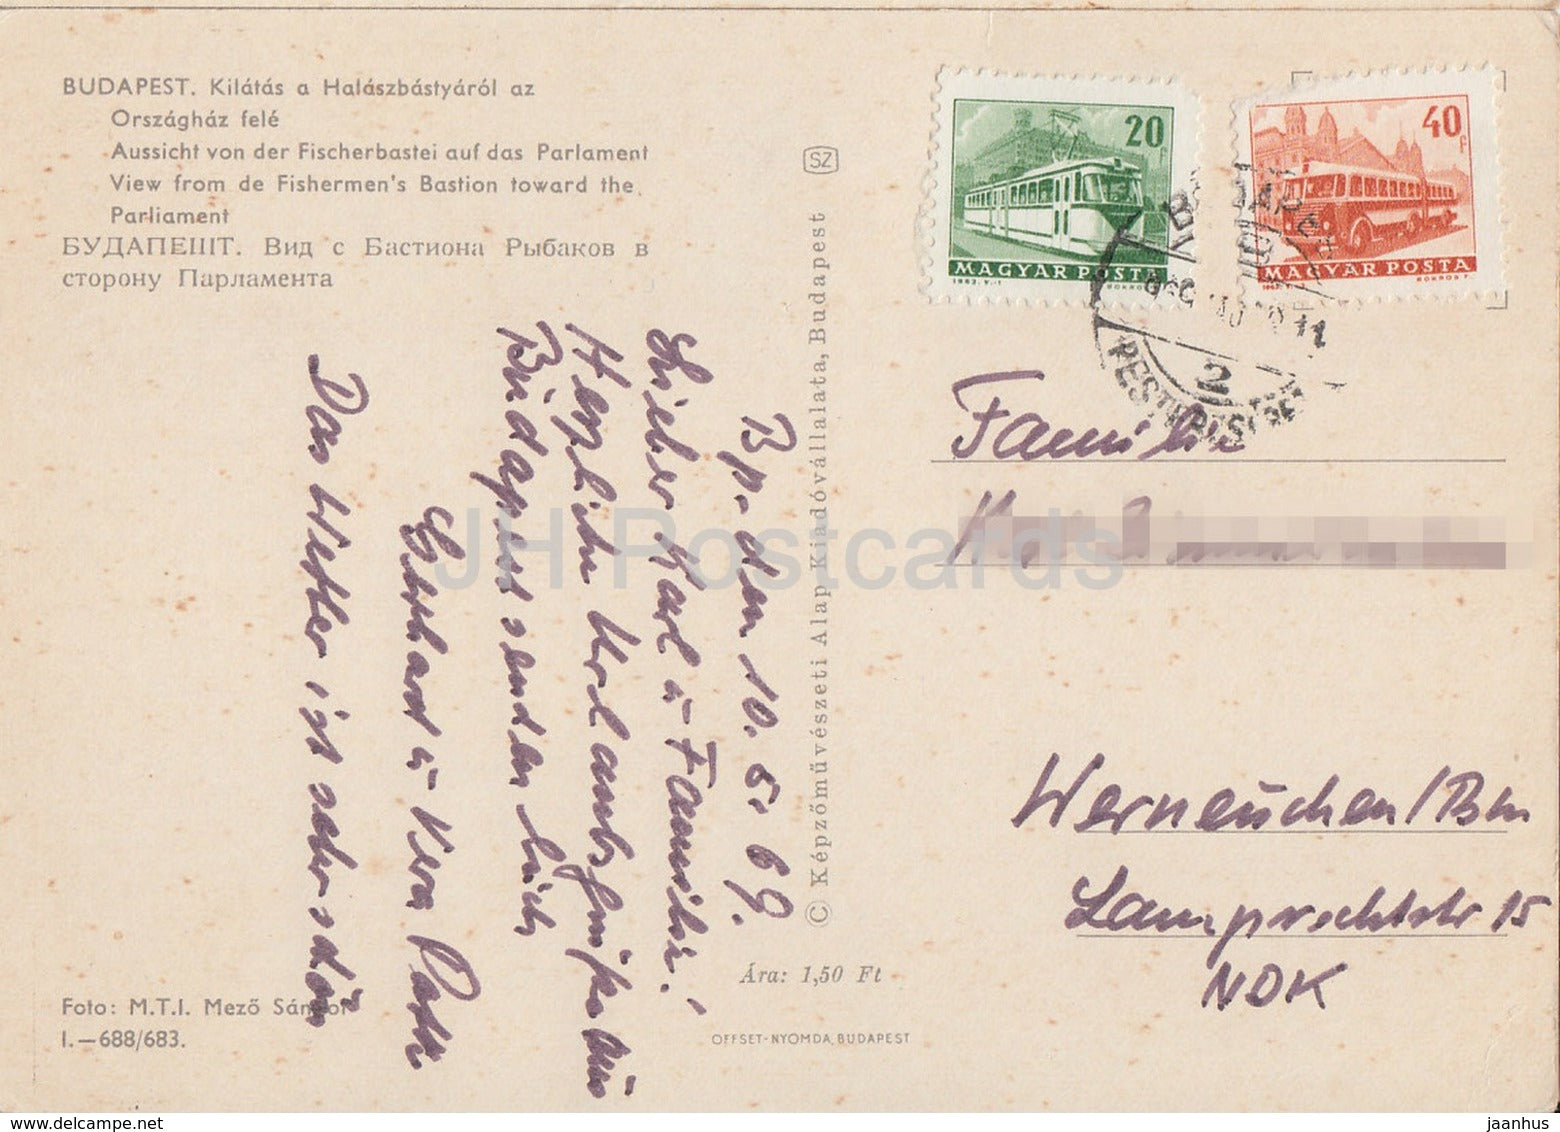 BUDAPEST. Kilátás a Halászbástyáról az
Országház felé
Aussicht von der Fischerbastei auf das Parlament
View from de Fishermen's Bastion toward the
Parliament
БУДАПЕШТ. Вид с Бастиона Рыбаков в
сторону Парламента
SZ
20
MAGYAR POSTA
40f
MAGYAR POSTA
2
© Képzőművészeti Alap Kiadóvállalata, Budapest
Bp. den 10. 5. 69.
Lieber Karl u. Familie!
Herzliche Urlaubsgrüße aus
Budapest senden Euch
Gerhard u.
Das Wetter ist sehr schön
Familie
Werneuchen/Bln
Lamprechtstr 15
NDK
Ára: 1,50 Ft
Foto: M.T.I. Mező Sándor
I.—688/683.
OFFSET-NYOMDA, BUDAPEST
JH Postcards
www.delcampe.net
jaanhus